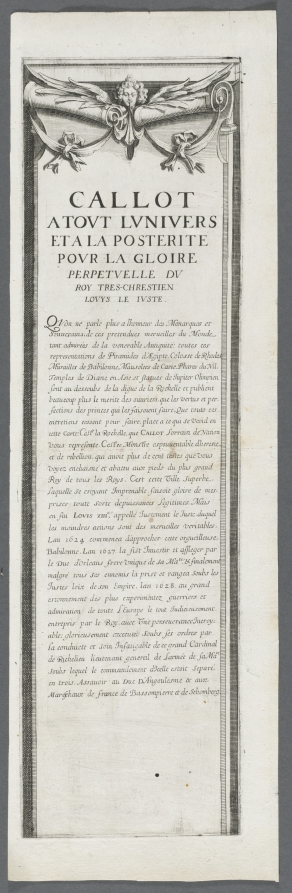 CALLOT
A TOVT LVNIVERS
ET A LA POSTERITE
POVR LA GLOIRE
PERPETVELLE DV
ROY TRES-CHRESTIEN
LOVYS LE IVSTE.
On ne parle plus a lhonneur des Monarques et
Souuerains de ces pretendues merueilles du Monde,
tant admirées de la venerable Antiquité. toutes ces
representations de Piramides d'Egipte, Colosse de Rhodes
Murailles de Babilonne, Mausolees de Carie, Phares du Nil
Temples de Diane en Asie et statues de Iupiter
sont au dessoubs de la digue de la Rochelle et publient
beaucoup plus le merite des ouuriers que les vertus et per-
fections des princes qui les faisoient faire. Que toute ces
entretiens cessent pour faire place a ce qui se Void en
cette Carte. C'est la Rochelle, que CALLOT Lorrain de Nation
Vous represente. C'est ce Monstre espouuantable d'heresie
et de rebellion qui auoit plus de cent testes que vous
voyez enchaisné et abatu aux pieds du plus grand
Roy de tous les Roys. C'est cette Ville Superbe,
laquelle se croyant Imprenable faisoit gloire de mes
priser toute sorte de puissances legitimes. Mais
en fin LOVYS appellé Iustement le Iuste duquel
les moindres actions sont des merueilles veritables.
Lan 1624 commenca d'approcher cette orgueilleuse
Babilonne. Lan 1627 la fist Inuestir et assieger par
le Duc d'Orleans frere Vnique de Sa Ma.te Et finalement
malgré tous ses ennemis la prist et rangea soubs les
Iustes loix de son Empire. lan 1628. au grand
estonnement des plus experimentez guerriers et
admiration de toute l'Europe le tout Iudicieusement
entrepris par le Roy, auec Vne perseuerance Incroy-
able, glorieusement executé Soubs ses ordres par
la conduite et soin Infatigable de ce grand Cardinal
de Richelieu lieutenant general de l'armée de sa Ma.te
Soubs lequel le commandement d'Icelle estoit Separé
en trois Assauoir au Duc D'Angoulesme & aux
Mareschaux de france de Bassompierre et de Schomberg.